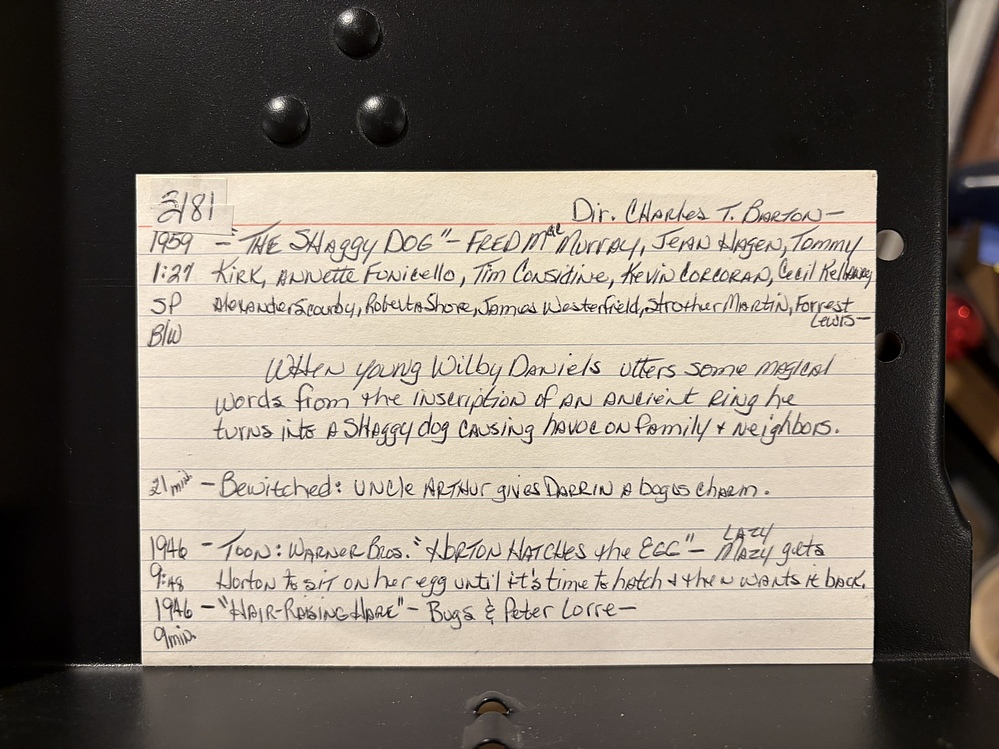 2181
Dir. Charles T. Barton-
1959 - "The Shaggy Dog" - Fred MacMurray, Jean Hagen, Tommy
1:27 Kirk, Annette Funicello, Tim Considine, Kevin Corcoran, Cecil Kellaway
SP Alexander Scourby, Roberta Shore, James Westerfield, Strother Martin, Forrest
Lewis-
B/W
When young Wilby Daniels utters some magical
words from the inscription of an ancient ring he
turns into a shaggy dog causing havoc on family & neighbors.
21 min. - Bewitched: Uncle Arthur gives Darrin a bogus charm.
1946 - Toon: Warner Bros. "Horton Hatches the Egg" - Lazy Mazy gets
9:48 Horton to sit on her egg until it's time to hatch & then wants it back.
1946 - "Hair-Raising Hare" - Bugs & Peter Lorre-
9 min.